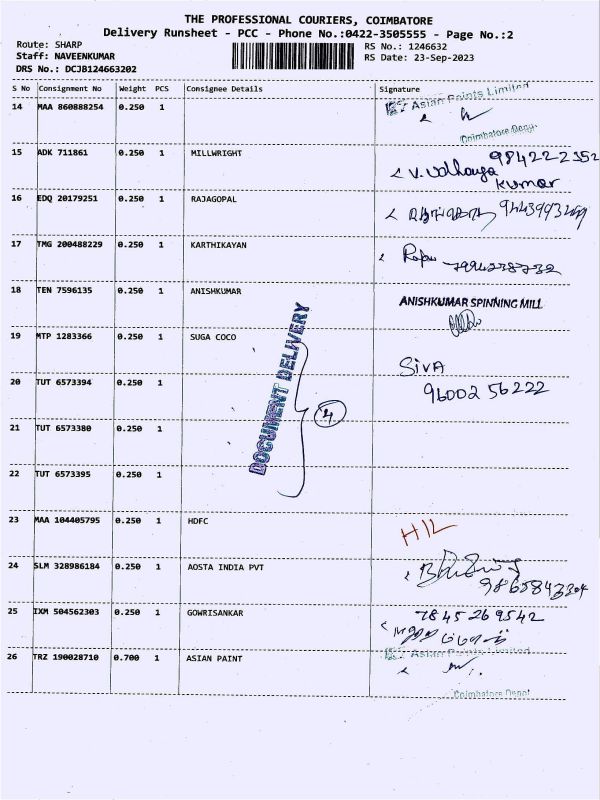 THE PROFESSIONAL COURIERS, COIMBATORE
Delivery Runsheet - PCC - Phone No.:0422-3505555 - Page No.:2
Route: SHARP
Staff: NAVEENKUMAR
DRS No.: DCJB124663202
RS No.: 1246632
RS Date: 23-Sep-2023
S No Consignment No Weight PCS Consignee Details Signature
14 MAA 860888254 0.250 1
Asian Paints Limited
Coimbatore Depot
15 ADK 711861 0.250 1 MILLWRIGHT
9842222352
kumar
16 EDQ 20179251 0.250 1 RAJAGOPAL
17 TMG 200488229 0.250 1 KARTHIKAYAN
18 TEN 7596135 0.250 1 ANISHKUMAR ANISHKUMAR SPINNING MILL
19 MTP 1283366 0.250 1 SUGA COCO
SIVA
96002 56222
DOCUMENT DELIVERY
4
20 TUT 6573394 0.250 1
21 TUT 6573380 0.250 1
22 TUT 6573395 0.250 1
23 MAA 104405795 0.250 1 HDFC
24 SLM 328986184 0.250 1 AOSTA INDIA PVT
25 IXM 504562303 0.250 1 GOWRISANKAR 7845269542
26 TRZ 190028710 0.700 1 ASIAN PAINT Asian Paints Limited
Coimbatore Depot